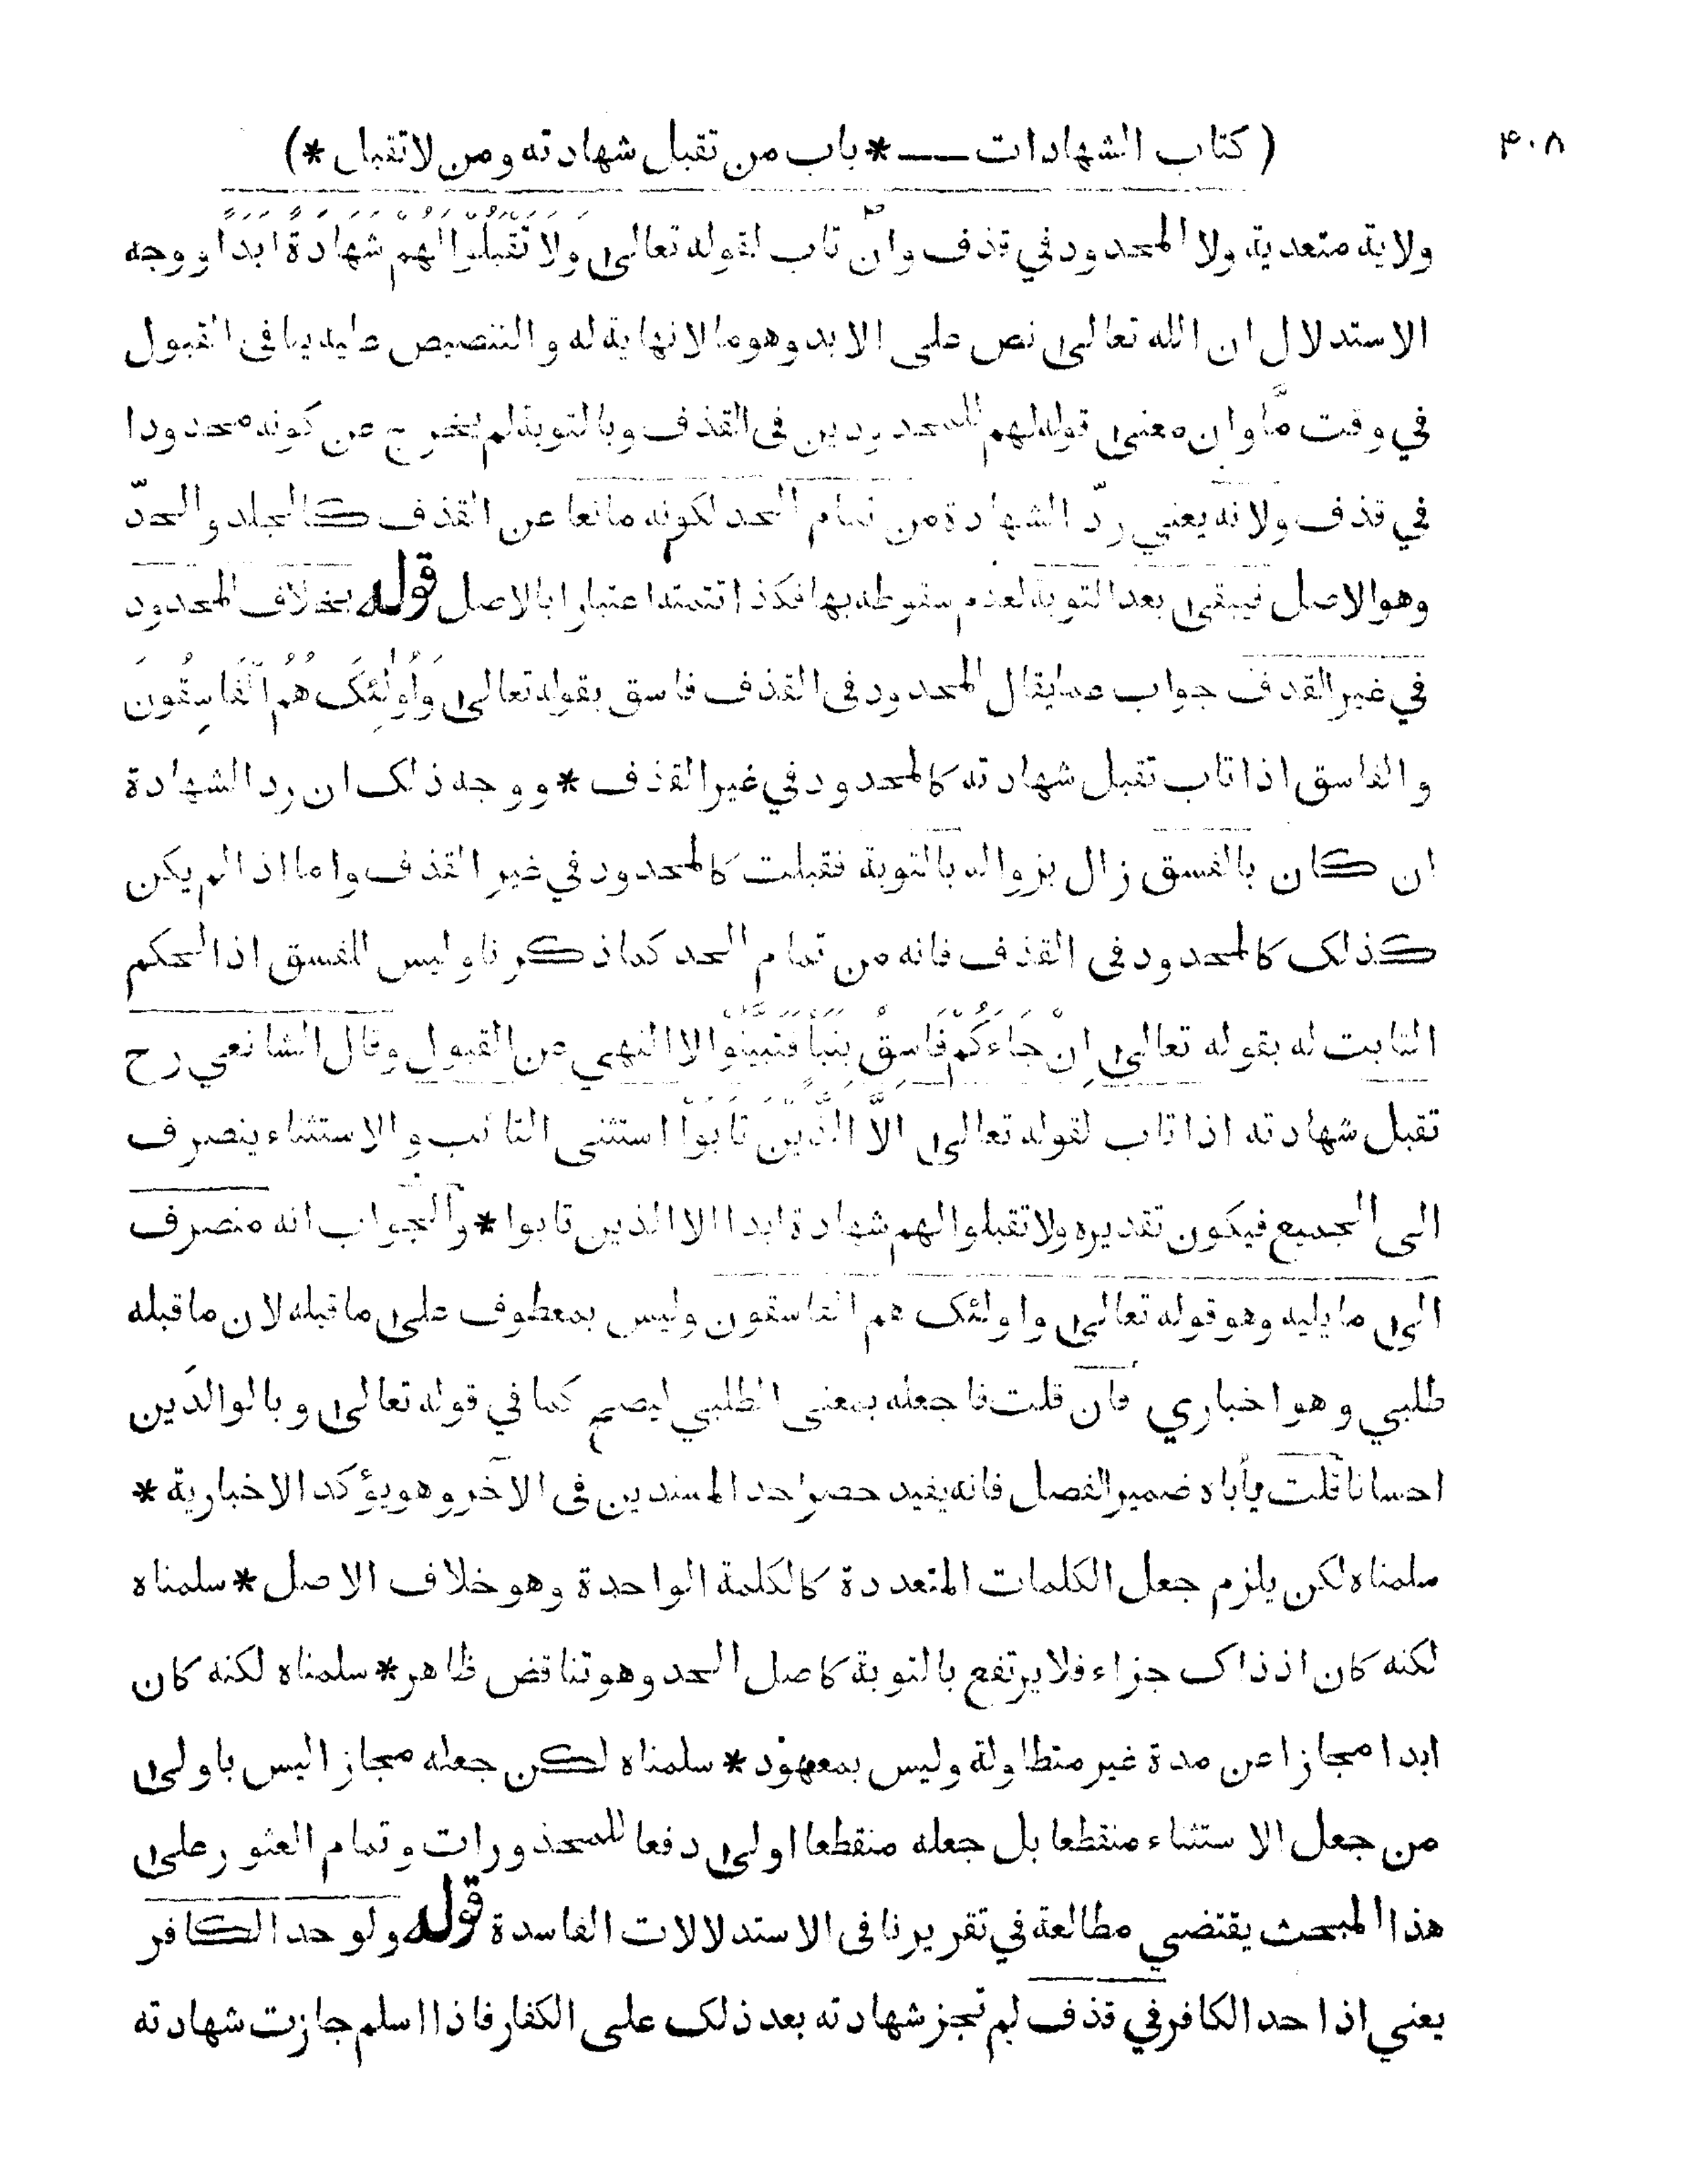 ٣٠٨
( كتاب الشهادات —— * باب من تقبل شهادته ومن لا تقبل * )
ولاية متعدية ولا المحدود في قذف وان تاب لقوله تعالى وَلَا تَقْبَلُوْا لَهُمْ شَهَادَةً اَبَدًا ووجه
الاستدلال ان الله تعالى نص على الابد وهو ما لا نهاية له والتنصيص عليه ينافى القبول
في وقت مّا وان معنى قوله لهم للمحدودين فى القذف وبالتوبة لم يخرج عن كونه محدودا
في قذف ولانه يعني ردّ الشهادة من تمام الحد لكونه مانعا عن القذف كالجلد والحدّ
وهو الاصل فيبقى بعد التوبة لعدم سقوطه بها فكذا تتمته اعتبارا بالاصل قوله بخلاف المحدود
في غير القذف جواب عما يقال المحدود فى القذف فاسق بقوله تعالى وَاُولٰئِكَ هُمُ الْفَاسِقُونَ
والفاسق اذا تاب تقبل شهادته كالمحدود في غير القذف * ووجه ذلك ان رد الشهادة
ان كان بالفسق زال بزواله بالتوبة فقبلت كالمحدود في غير القذف واما اذا لم يكن
كذلك كالمحدود فى القذف فانه من تمام الحد كما ذكرنا وليس للفسق اذ الحكم
الثابت له بقوله تعالى اِنْ جَاءَكُمْ فَاسِقٌ بِنَبَأٍ فَتَبَيَّنُوْا الا النهي عن القبول وقال الشافعي رح
تقبل شهادته اذا تاب لقوله تعالى اِلَّا الَّذِيْنَ تَابُوْا استثنى التائب والاستثناء ينصرف
الى الجميع فيكون تقديره ولا تقبلوا لهم شهادة ابدا الا الذين تابوا * والجواب انه منصرف
الى ما يليه وهو قوله تعالى واولئك هم الفاسقون وليس بمعطوف على ما قبله لان ما قبله
طلبي وهو اخباري فان قلت فاجعله بمعنى الطلبي ليصح كما في قوله تعالى وبالوالدين
احسانا قلت يأباه ضمير الفصل فانه يفيد حصر احد المسندين فى الآخر وهو يؤكد الاخبارية *
سلمناه لكن يلزم جعل الكلمات المتعددة كالكلمة الواحدة وهو خلاف الاصل * سلمناه
لكنه كان اذ ذاك جزاء فلا يرتفع بالتوبة كاصل الحد وهو تناقض ظاهر * سلمناه لكنه كان
ابدا مجازا عن مدة غير متطاولة وليس بمعهود * سلمناه لكن جعله مجازا ليس باولى
من جعل الاستثناء منقطعا بل جعله منقطعا اولى دفعا للمحذورات وتمام العثور على
هذا المبحث يقتضي مطالعة في تقريرنا فى الاستدلالات الفاسدة قوله ولو حد الكافر
يعني اذا حد الكافر في قذف لم تجز شهادته بعد ذلك على الكفار فاذا اسلم جازت شهادته